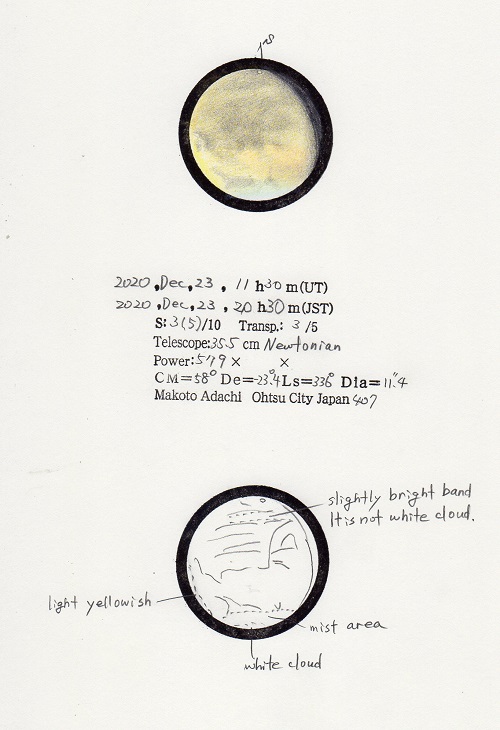 2020, Dec, 23, 11 h30 m(UT)
2020, Dec, 23, 20 h30 m(JST)
S: 3(5)/10 Transp.: 3 /5
Telescope:355 cm Newtonian
Power:579 × ×
CM=58° De=-23°.4 Ls=336° Dia=11".4
Makoto Adachi Ohtsu City Japan 407
slightly bright band
It is not white cloud.
light yellowish
mist area
white cloud